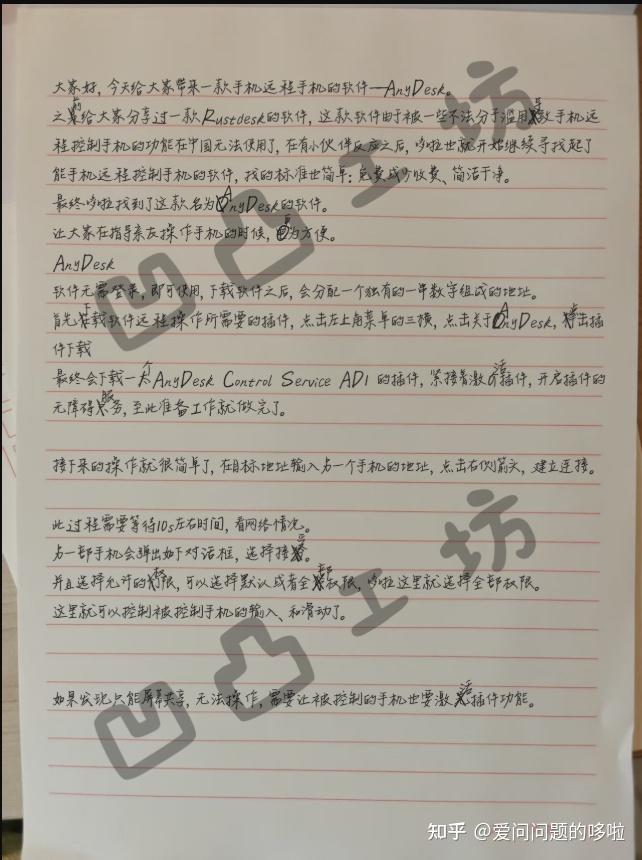 大家好，今天给大家带来一款手机远程手机的软件—AnyDesk。
之前给大家分享过一款Rustdesk的软件，这款软件由于被一些不法分子滥用，导致手机远
程控制手机的功能在中国无法使用了，在有小伙伴反应之后，哆啦也就开始继续寻找起了
能手机远程控制手机的软件，找的标准也简单：免费或少收费、简洁干净。
最终哆啦找到了这款名为AnyDesk的软件。
让大家在指导亲友操作手机的时候，更为方便。
AnyDesk
软件无需登录，即可使用，下载软件之后，会分配一个独有的一串数字组成的地址。
首先下载软件远程操作所需要的插件，点击左上角菜单的三横，点击关于AnyDesk，点击插
件下载
最终会下载一个AnyDesk Control Service AD1的插件，紧接着激活插件，开启插件的
无障碍服务，至此准备工作就做完了。
接下来的操作就很简单了，在目标地址输入另一个手机的地址，点击右侧箭头，建立连接。
此过程需要等待10s左右时间，看网络情况。
另一部手机会弹出如下对话框，选择接受。
并且选择允许的权限，可以选择默认或者全部权限，哆啦这里就选择全部权限。
这里就可以控制被控制手机的输入、和滑动了。
如果发现只能屏幕共享，无法操作，需要让被控制的手机也要激活插件功能。
凹凸工坊
凹凸工坊
知乎 @爱问问题的哆啦